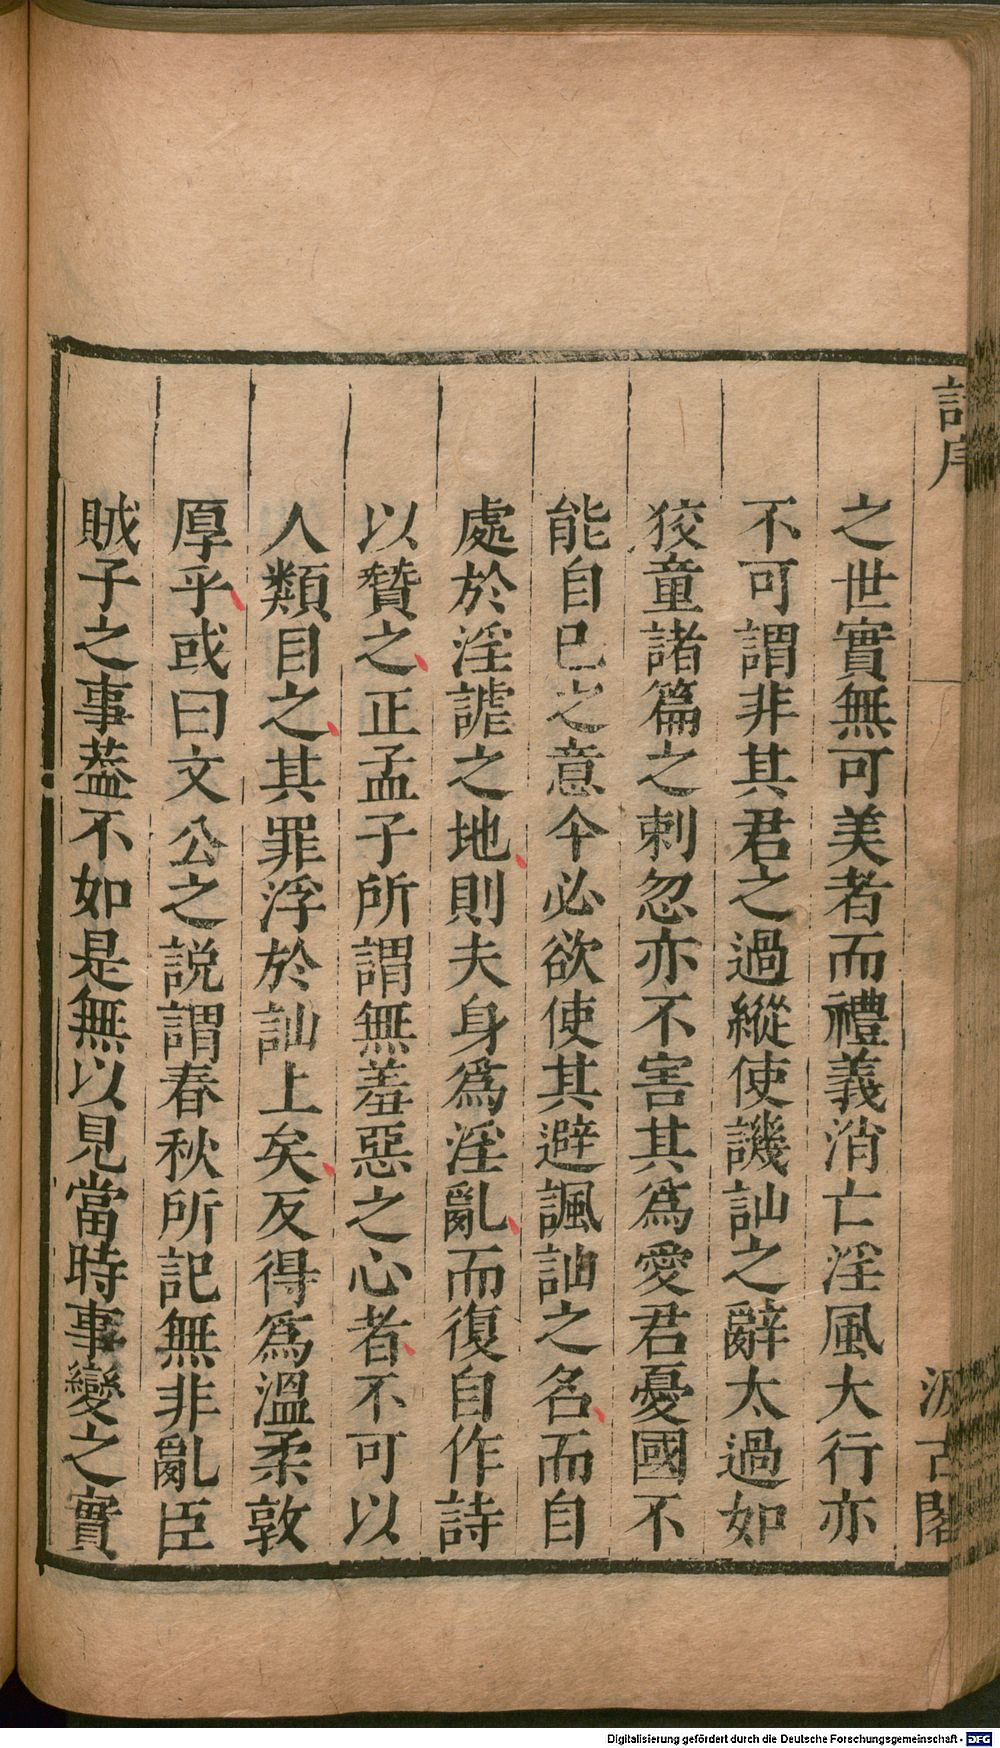 詩序
汲古閣
之世實無可美者而禮義消亡淫風大行亦
不可謂非其君之過縱使譏訕之辭太過如
狡童諸篇之刺忽亦不害其爲愛君憂國不
能自已之意今必欲使其避諷訕之名而自
處於淫謔之地則夫身爲淫亂而復自作詩
以贊之正孟子所謂無羞惡之心者不可以
人類目之其罪浮於訕上矣反得爲溫柔敦
厚乎或曰文公之説謂春秋所記無非亂臣
賊子之事葢不如是無以見當時事變之實
Digitalisierung gefördert durch die Deutsche Forschungsgemeinschaft - DFG